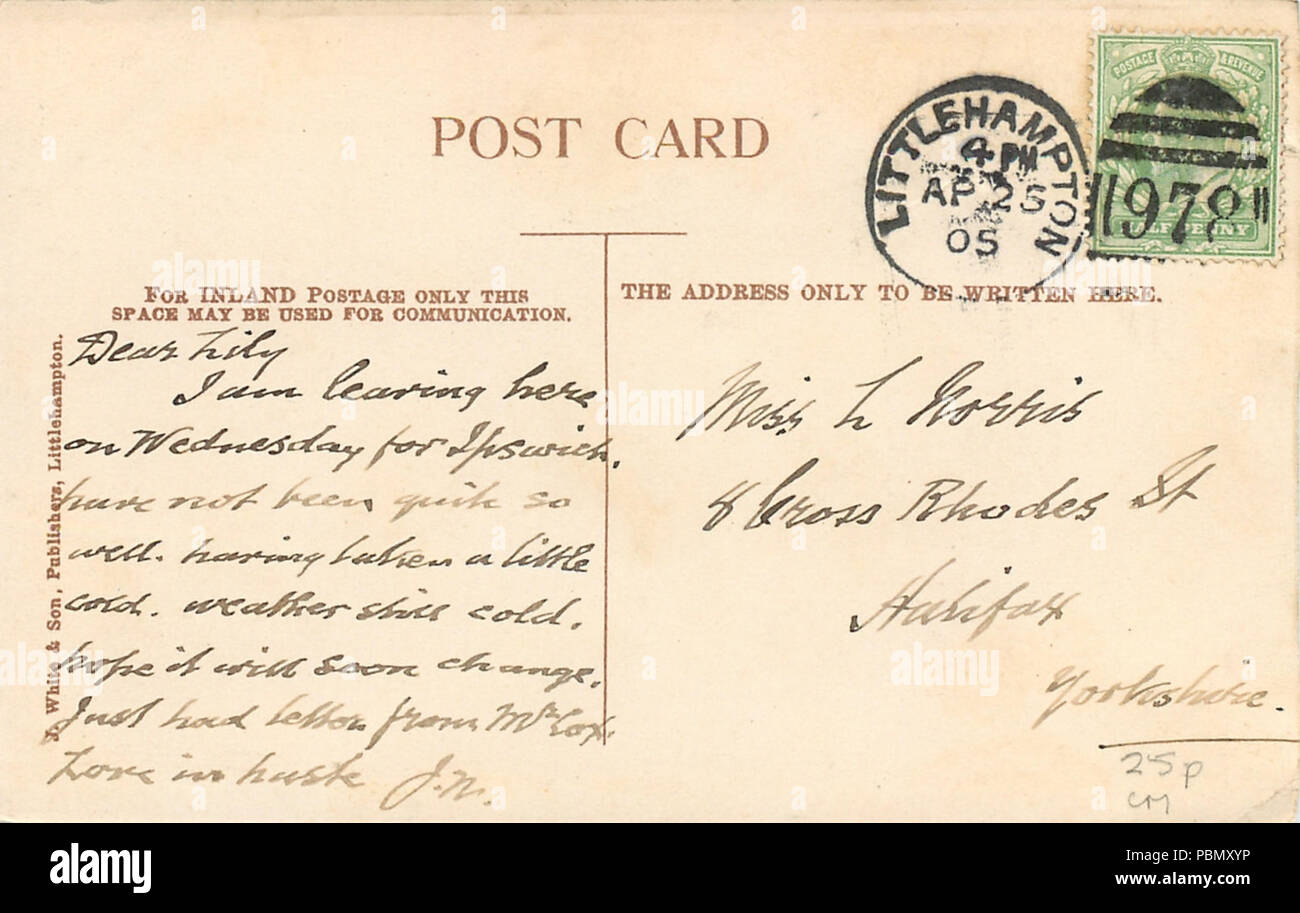 POST CARD
POSTAGE & REVENUE
HALFPENNY
LITTLEHAMPTON
4 PM
AP 25
05
978
FOR INLAND POSTAGE ONLY THIS
SPACE MAY BE USED FOR COMMUNICATION.
THE ADDRESS ONLY TO BE WRITTEN HERE.
J. White & Son, Publishers, Littlehampton.
Dear Lily
I am leaving here
on Wednesday for Ipswich.
have not been quite so
well. having taken a little
cold. weather still cold.
hope it will soon change.
Just had letter from Mr Cox.
Love in haste J.N.
Miss L Norris
8 Cross Rhodes St
Halifax
Yorkshire.
25p
CM
alamy
alamy
Image ID: PBMXYP
www.alamy.com